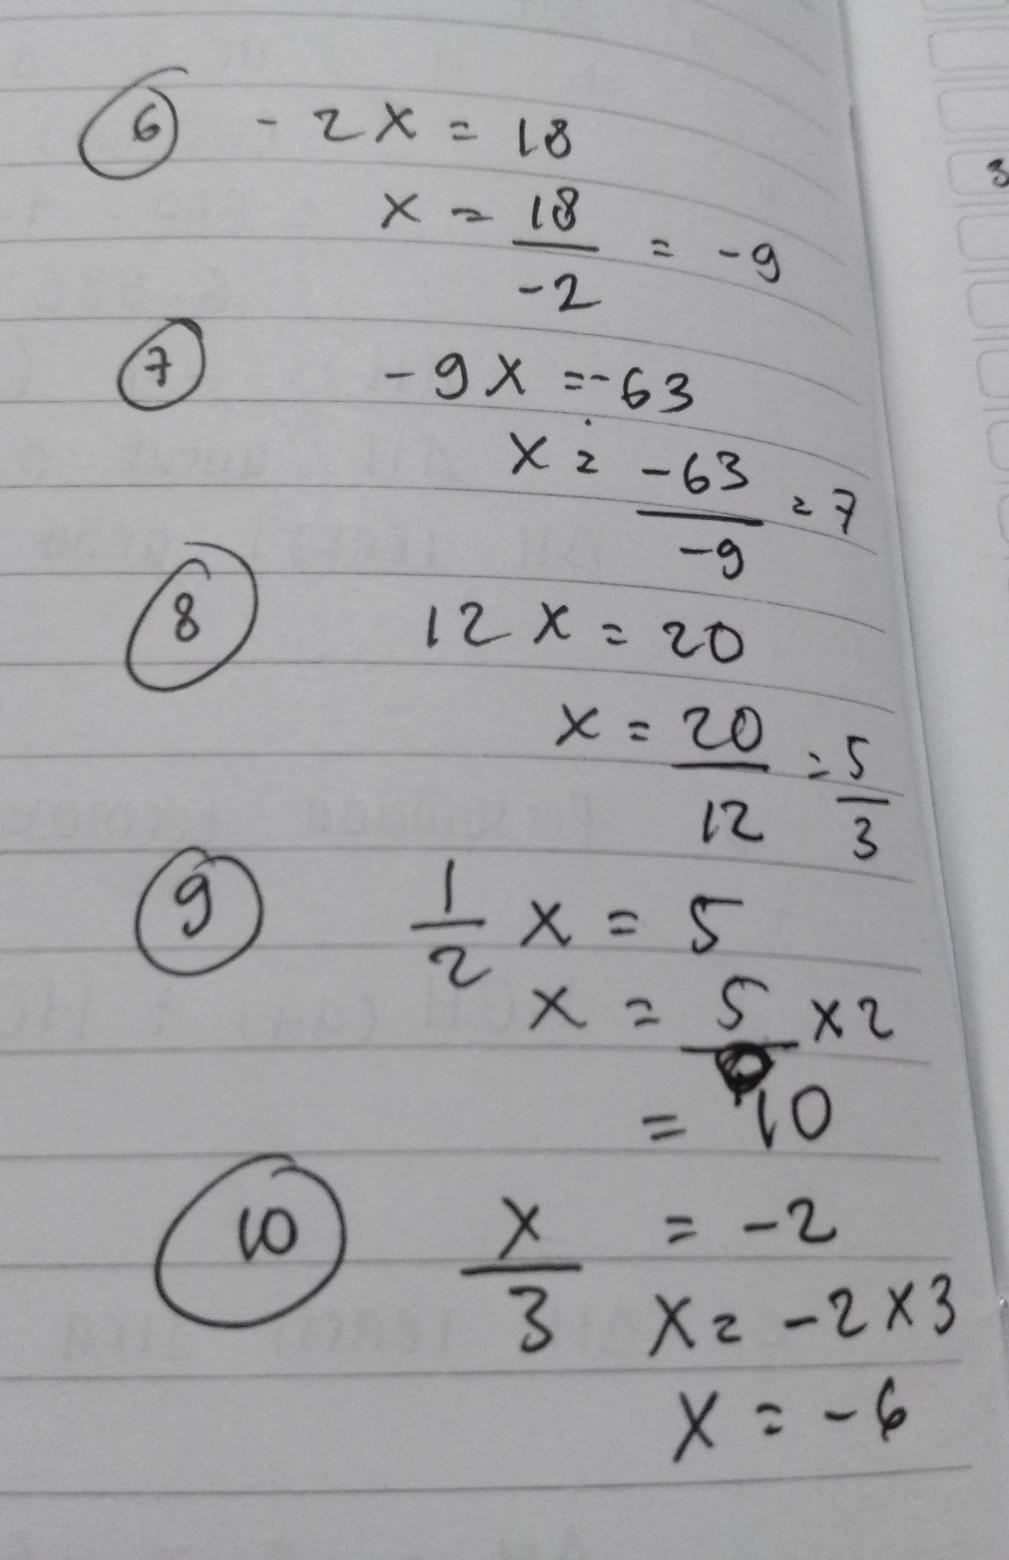 6 - 2x = 18
x = 18/-2 = -9
7 -9x = -63
x = -63/-9 = 7
8 12x = 20
x = 20/12 = 5/3
9 1/2 x = 5
x = 5 x 2
= 10
10 x/3 = -2
x = -2 x 3
x = -6
3